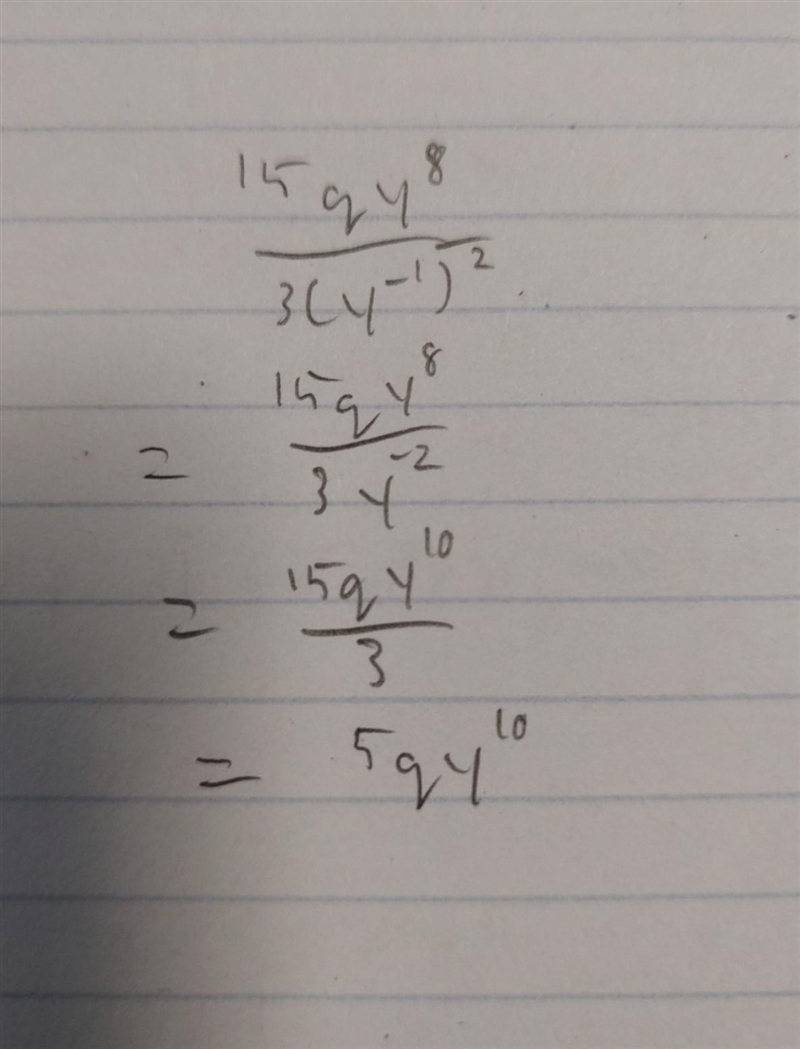 15qy⁸
3(y⁻¹)²
= 15qy⁸
3y⁻²
= 15qy¹⁰
3
= 5qy¹⁰